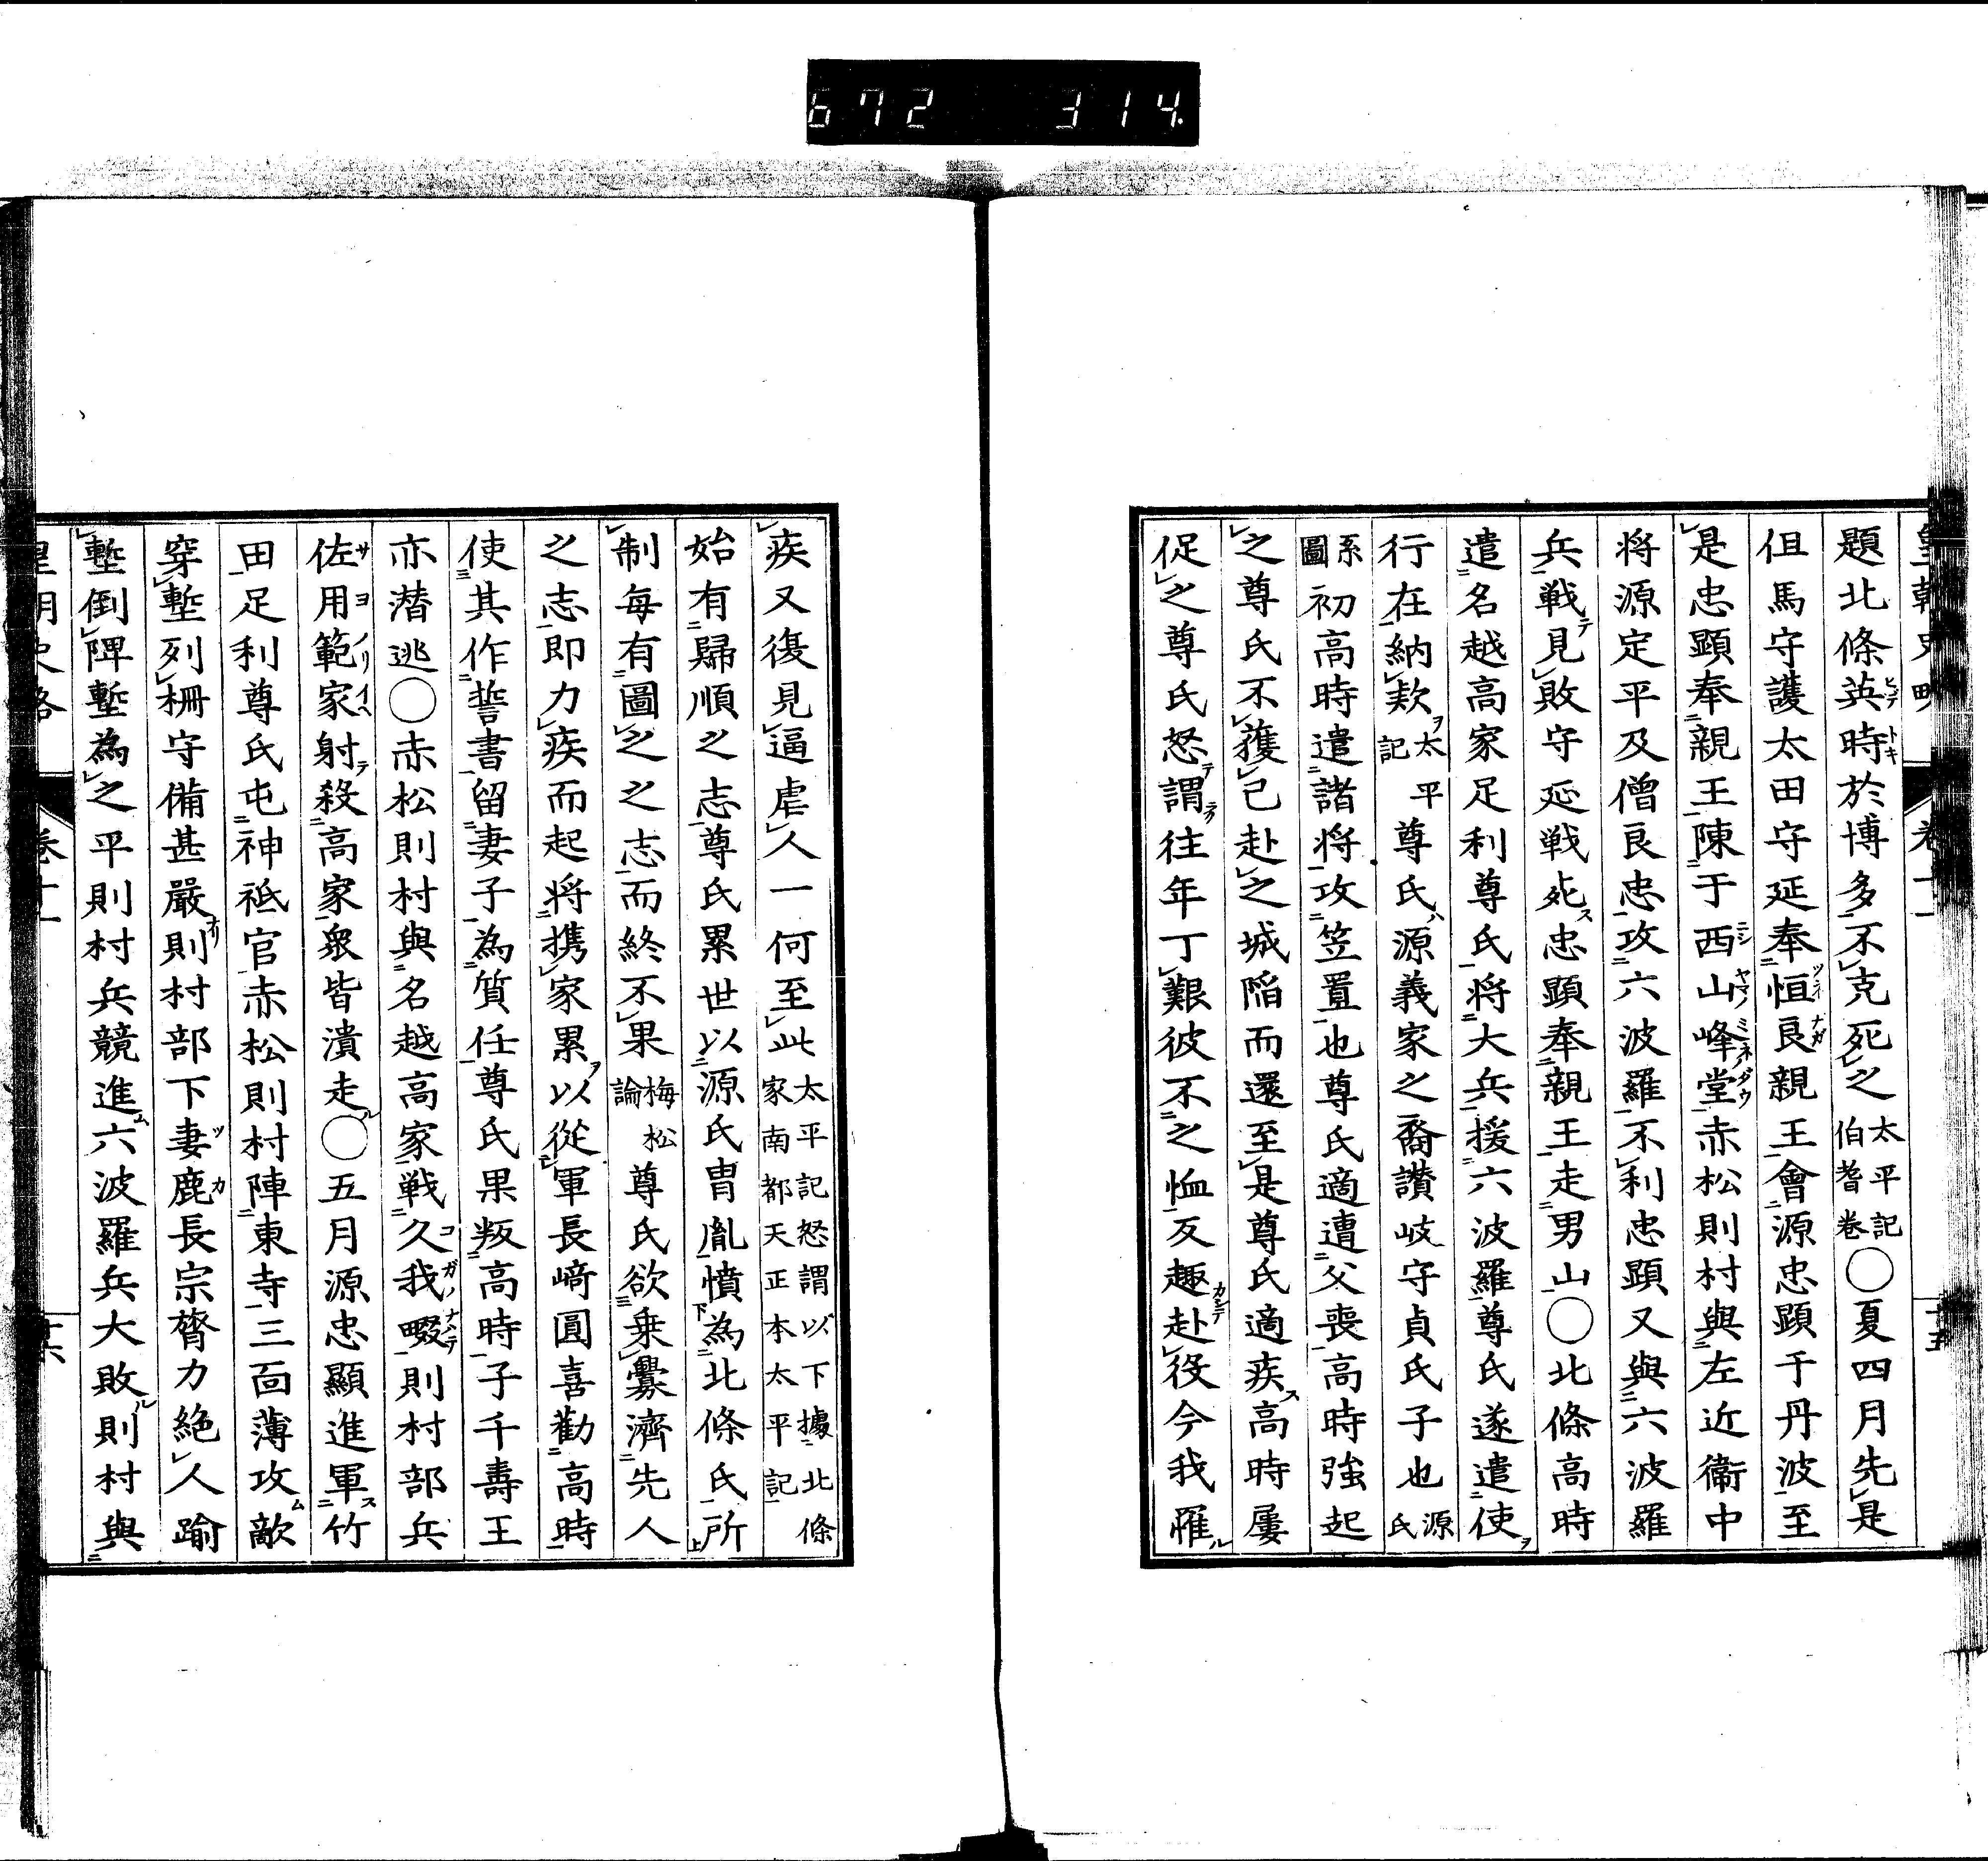 672 314.
題北條英時於博多不克死之太平記伯耆卷○夏四月先是
但馬守護太田守延奉恒良親王會源忠顕于丹波至
是忠顕奉親王陳于西山峰堂赤松則村與左近衞中
将源定平及僧良忠攻六波羅不利忠顕又與六波羅
兵戦見敗守延戦死忠顕奉親王走男山○北條高時
遣名越高家足利尊氏将大兵援六波羅尊氏遂遣使
行在納欵太平記尊氏源義家之裔讃岐守貞氏子也源氏
系圖初高時遣諸将攻笠置也尊氏適遭父喪高時強起
之尊氏不獲已赴之城陥而還至是尊氏適疾高時屡
促之尊氏怒謂往年丁艱彼不之恤反趣赴役今我罹
疾又復見逼虐人一何至此太平記怒謂以下據北條家南都天正本太平記
始有歸順之志尊氏累世以源氏冑胤憤為北條氏所
制毎有圖之之志而終不果梅松論尊氏欲乗釁濟先人
之志即力疾而起将携家累以從軍長﨑圓喜勸高時
使其作誓書留妻子為質任尊氏果叛高時子千壽王
亦潜逃○赤松則村與名越高家戦久我畷則村部兵
佐用範家射殺高家衆皆潰走○五月源忠顕進軍竹
田足利尊氏屯神祇官赤松則村陣東寺三面薄攻敵
穿塹列柵守備甚嚴則村部下妻鹿長宗膂力絶人踰
塹倒陴塹為之平則村兵競進六波羅兵大敗則村與